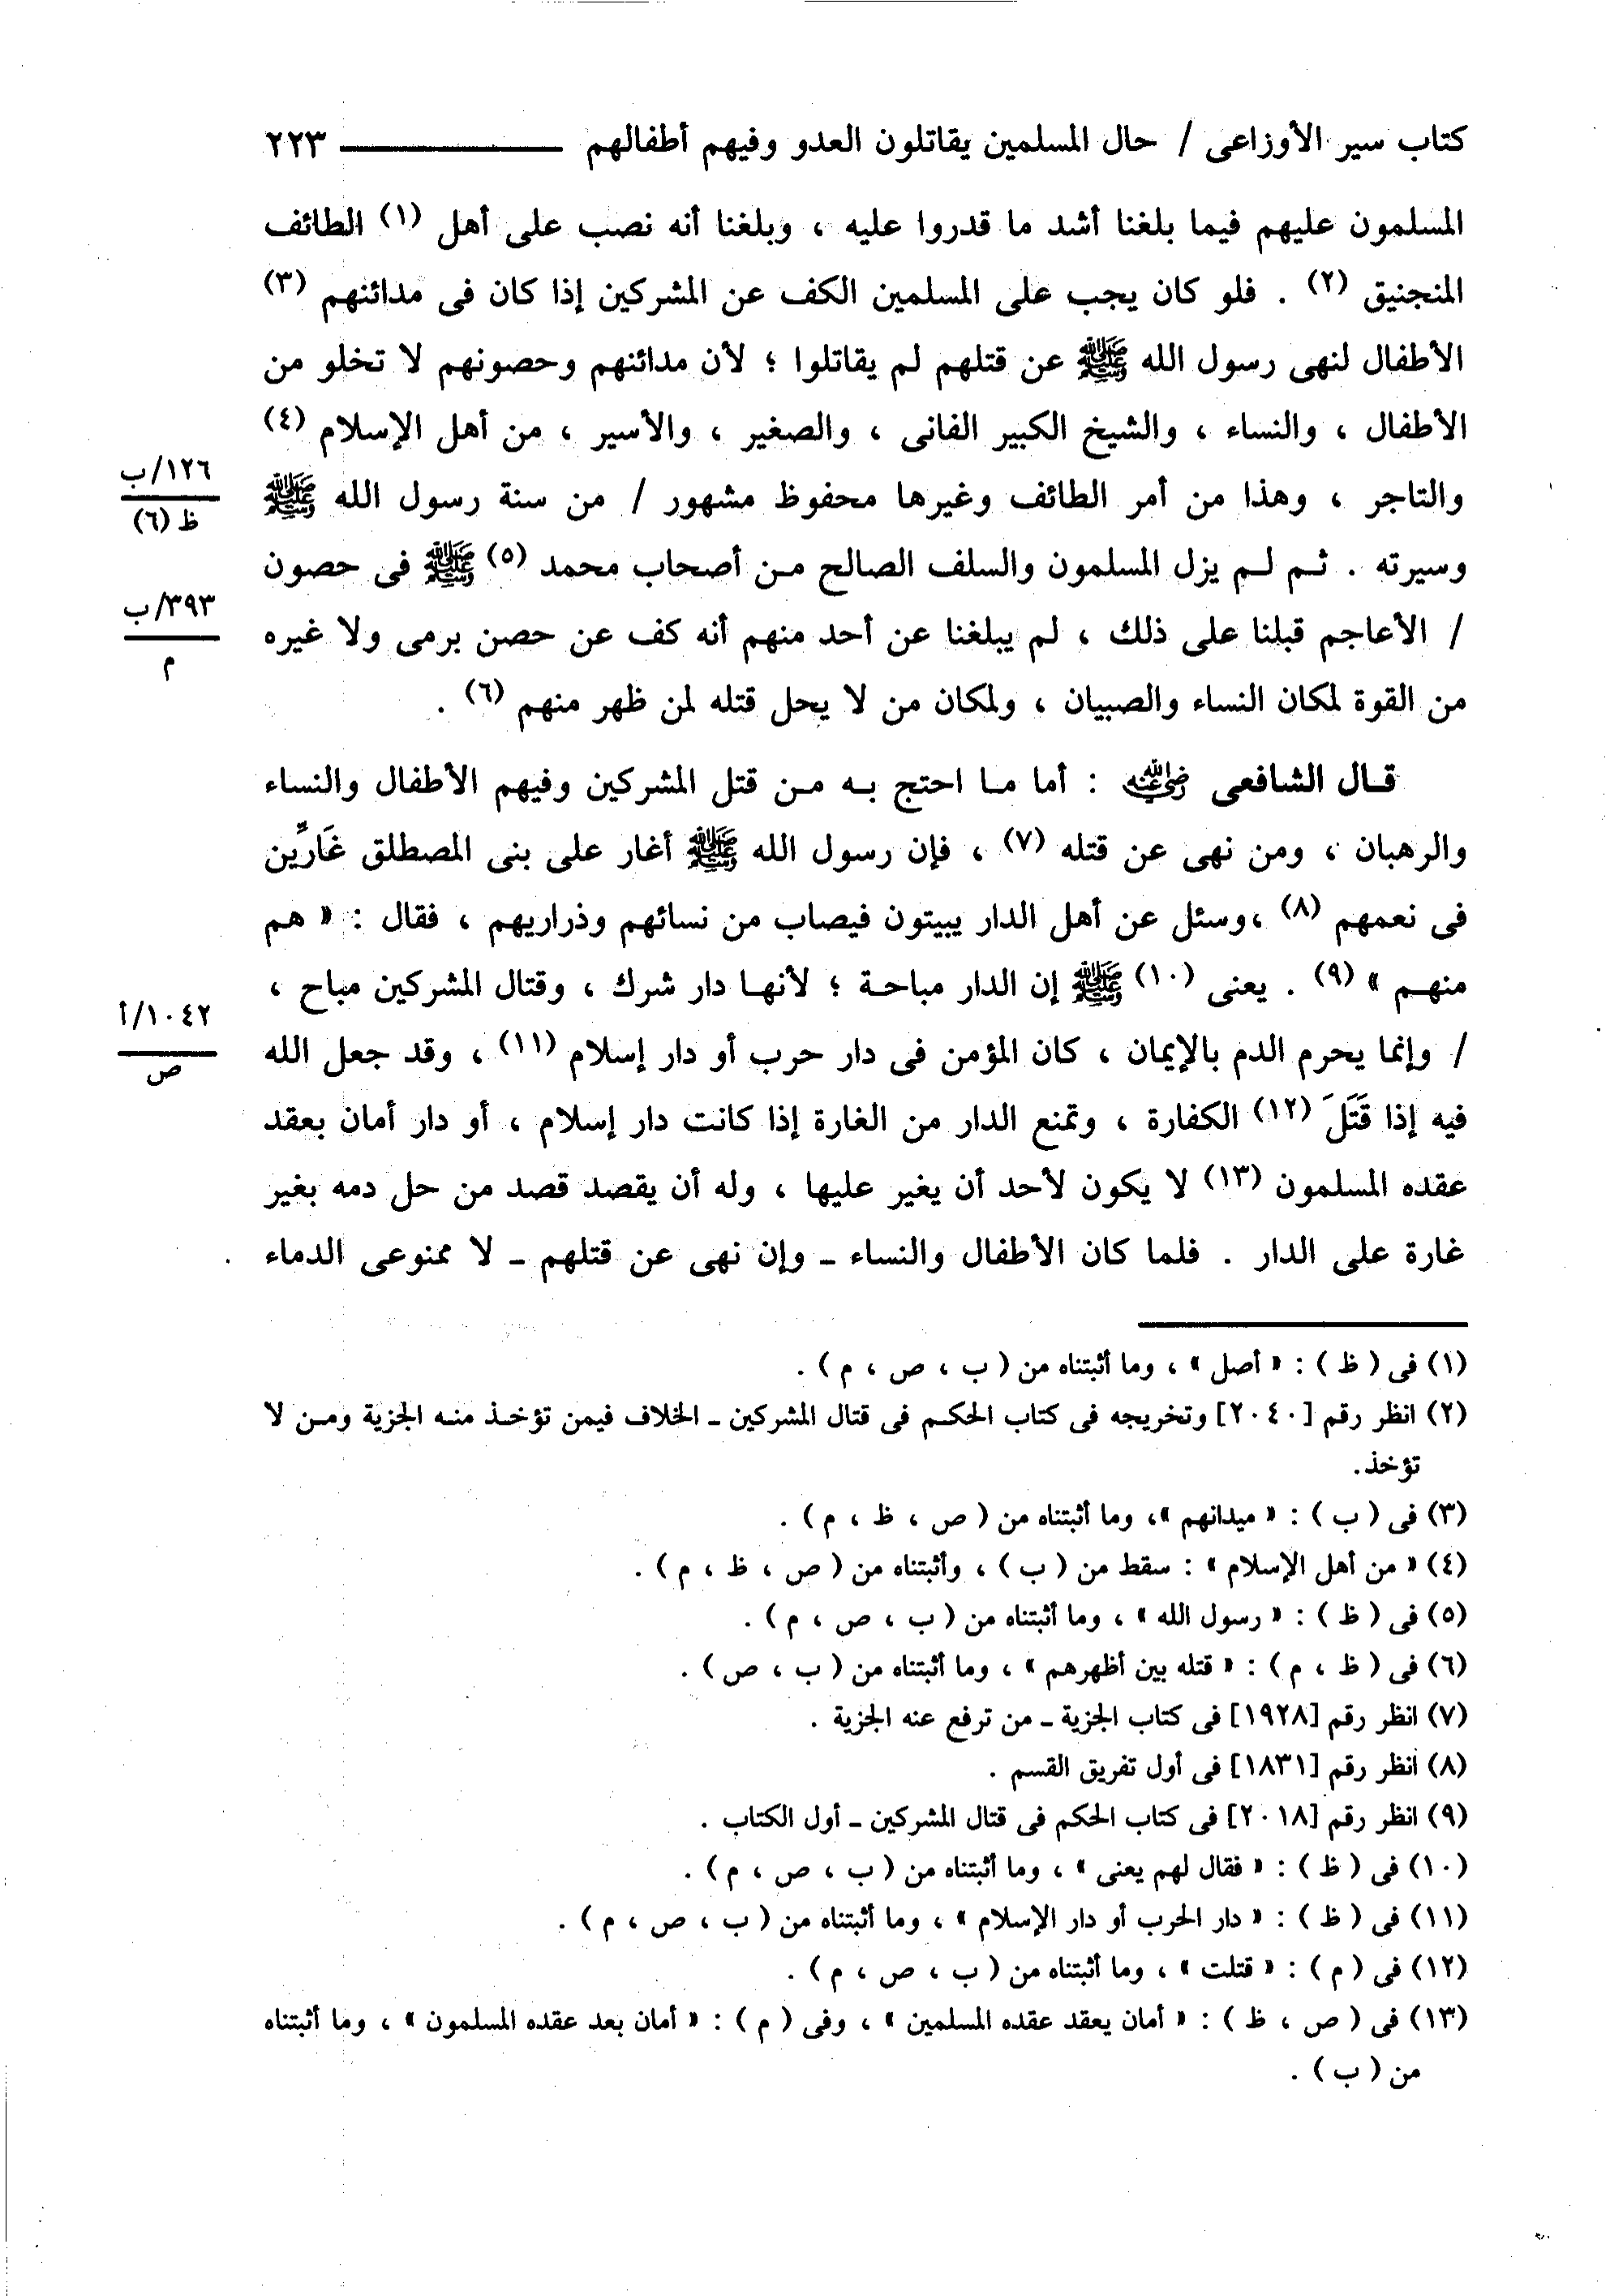 كتاب سير الأوزاعى / حال المسلمين يقاتلون العدو وفيهم أطفالهم ــــــــــــ ٢٢٣
المسلمون عليهم فيما بلغنا أشد ما قدروا عليه ، وبلغنا أنه نصب على أهل (١) الطائف
المنجنيق (٢) . فلو كان يجب على المسلمين الكف عن المشركين إذا كان فى مدائنهم (٣)
الأطفال لنهى رسول الله ﷺ عن قتلهم لم يقاتلوا ؛ لأن مدائنهم وحصونهم لا تخلو من
الأطفال ، والنساء ، والشيخ الكبير الفانى ، والصغير ، والأسير ، من أهل الإسلام (٤)
١٢٦/ب
ظ (٦)
والتاجر ، وهذا من أمر الطائف وغيرها محفوظ مشهور / من سنة رسول الله ﷺ
وسيرته . ثم لم يزل المسلمون والسلف الصالح من أصحاب محمد (٥) ﷺ فى حصون
٣٩٣/ب
م
/ الأعاجم قبلنا على ذلك ، لم يبلغنا عن أحد منهم أنه كف عن حصن برمى ولا غيره
من القوة لمكان النساء والصبيان ، ولمكان من لا يحل قتله لمن ظهر منهم (٦) .
قال الشافعى رضي الله عنه : أما ما احتج به من قتل المشركين وفيهم الأطفال والنساء
والرهبان ، ومن نهى عن قتله (٧) ، فإن رسول الله ﷺ أغار على بنى المصطلق غَارِّين
فى نعمهم (٨) ،وسئل عن أهل الدار يبيتون فيصاب من نسائهم وذراريهم ، فقال : « هم
منهم » (٩) . يعنى (١٠) ﷺ إن الدار مباحة ؛ لأنها دار شرك ، وقتال المشركين مباح ،
١٠٤٢/أ
ص
/ وإنما يحرم الدم بالإيمان ، كان المؤمن فى دار حرب أو دار إسلام (١١) ، وقد جعل الله
فيه إذا قَتَلَ (١٢) الكفارة ، وتمنع الدار من الغارة إذا كانت دار إسلام ، أو دار أمان بعقد
عقده المسلمون (١٣) لا يكون لأحد أن يغير عليها ، وله أن يقصد قصد من حل دمه بغير
غارة على الدار . فلما كان الأطفال والنساء ـ وإن نهى عن قتلهم ـ لا ممنوعى الدماء
(١) فى ( ظ ) : « أصل » ، وما أثبتناه من ( ب ، ص ، م ) .
(٢) انظر رقم [٢٠٤٠] وتخريجه فى كتاب الحكم فى قتال المشركين ـ الخلاف فيمن تؤخذ منه الجزية ومن لا
تؤخذ.
(٣) فى ( ب ) : « ميدانهم »، وما أثبتناه من ( ص ، ظ ، م ) .
(٤) « من أهل الإسلام » : سقط من ( ب ) ، وأثبتناه من ( ص ، ظ ، م ) .
(٥) فى ( ظ ) : « رسول الله » ، وما أثبتناه من ( ب ، ص ، م ) .
(٦) فى ( ظ ، م ) : « قتله بين أظهرهم » ، وما أثبتناه من ( ب ، ص ) .
(٧) انظر رقم [١٩٢٨] فى كتاب الجزية ـ من ترفع عنه الجزية .
(٨) انظر رقم [١٨٣١] فى أول تفريق القسم .
(٩) انظر رقم [٢٠١٨] فى كتاب الحكم فى قتال المشركين ـ أول الكتاب .
(١٠) فى ( ظ ) : « فقال لهم يعنى » ، وما أثبتناه من ( ب ، ص ، م ) .
(١١) فى ( ظ ) : « دار الحرب أو دار الإسلام » ، وما أثبتناه من ( ب ، ص ، م ) .
(١٢) فى ( م ) : « قتلت » ، وما أثبتناه من ( ب ، ص ، م ) .
(١٣) فى ( ص ، ظ ) : « أمان يعقد عقده المسلمين » ، وفى ( م ) : « أمان بعد عقده المسلمون » ، وما أثبتناه
من ( ب ) .